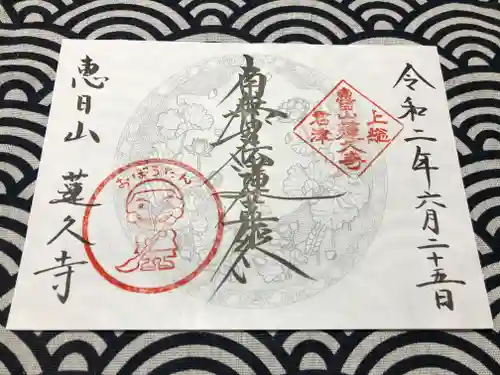 令和二年六月二十五日
上総
恵日山蓮久寺
君津
南無妙法蓮華経
おぼろたん
恵日山 蓮久寺